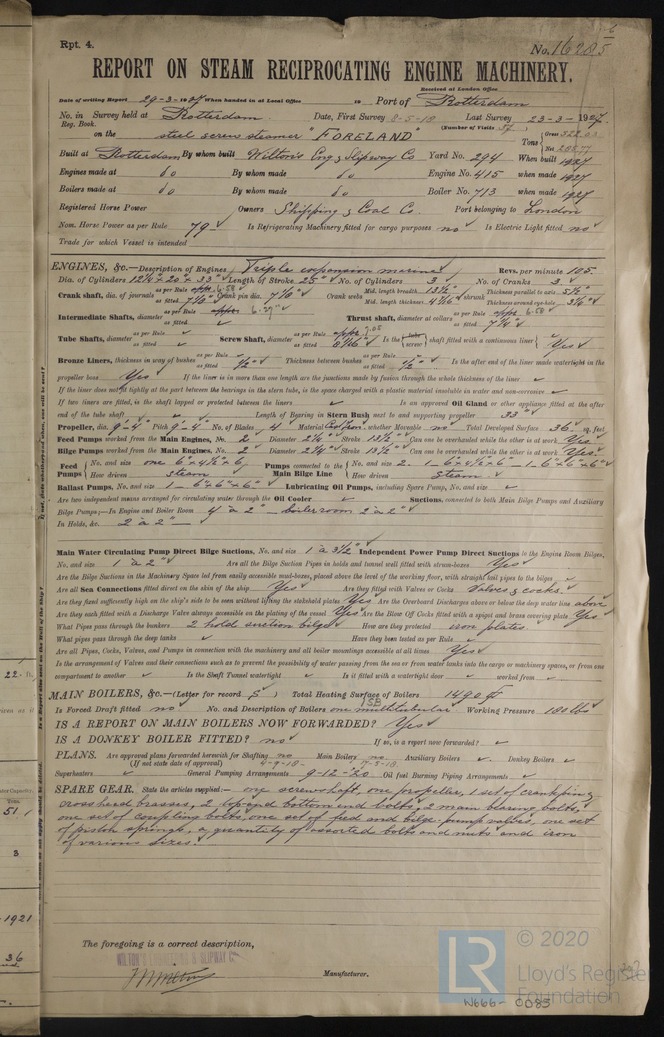 Rpt. 4.
No. 16285
REPORT ON STEAM RECIPROCATING ENGINE MACHINERY.
Received at London Office
Date of writing Report 29-3-1927 When handed in at Local Office 19 Port of Rotterdam
No. in Survey held at Rotterdam Date, First Survey 8-5-18 Last Survey 23-3-1927
Reg. Book. (Number of Visits 37)
on the steel screw steamer "FORELAND" Tons Gross Net
Built at Rotterdam By whom built Wilton's Eng. & Slipway Co Yard No. 294 When built 1927
Engines made at do By whom made do Engine No. 415 when made 1927
Boilers made at do By whom made do Boiler No. 713 when made 1927
Registered Horse Power Owners Shipping & Coal Co. Port belonging to London
Nom. Horse Power as per Rule 79 Is Refrigerating Machinery fitted for cargo purposes no Is Electric Light fitted no
Trade for which Vessel is intended
ENGINES, &c.—Description of Engines Triple expansion marine Revs. per minute 105
Dia. of Cylinders 12¼" x 20" x 33" Length of Stroke 25" No. of Cylinders 3 No. of Cranks 3
Crank shaft, dia. of journals as per Rule appr. 6.58 as fitted 7⅛" Crank pin dia. 7⅛" Crank webs Mid. length breadth 13½" Mid. length thickness shrunk Thickness parallel to axis Thickness around eye-hole
Intermediate Shafts, diameter as per Rule appr. 6.27" as fitted Thrust shaft, diameter at collars as per Rule appr. 6.58 as fitted 7¼"
Tube Shafts, diameter as per Rule as fitted Screw Shaft, diameter as per Rule appr. 7.05 as fitted Is the tube screw shaft fitted with a continuous liner Yes
Bronze Liners, thickness in way of bushes as per Rule as fitted ½" Thickness between bushes as per rule as fitted ½" Is the after end of the liner made watertight in the
propeller boss Yes If the liner is in more than one length are the junctions made by fusion through the whole thickness of the liner
If the liner does not fit tightly at the part between the bearings in the stern tube, is the space charged with a plastic material insoluble in water and non-corrosive
If two liners are fitted, is the shaft lapped or protected between the liners Is an approved Oil Gland or other appliance fitted at the after
end of the tube shaft Length of Bearing in Stern Bush next to and supporting propeller 33"
Propeller, dia. 9'-4" Pitch 9'-4" No. of Blades 4 Material Cast Iron whether Moveable no Total Developed Surface 36 sq. feet
Feed Pumps worked from the Main Engines, No. 2 Diameter 2¼" Stroke 13½" Can one be overhauled while the other is at work Yes
Bilge Pumps worked from the Main Engines, No. 2 Diameter 2¼" Stroke 13½" Can one be overhauled while the other is at work Yes
Feed Pumps No. and size one 6 x 4½ x 6 How driven steam Pumps connected to the Main Bilge Line No. and size 2 - 1-6"x4½"x6" - 1-6"x6"x6" How driven Steam
Ballast Pumps, No. and size 1-6"x6"x6" Lubricating Oil Pumps, including Spare Pump, No. and size
Are two independent means arranged for circulating water through the Oil Cooler Suctions, connected to both Main Bilge Pumps and Auxiliary
Bilge Pumps;—In Engine and Boiler Room 4 à 2" — boiler room 2 à 2"
In Holds, &c. 2 à 2"
Main Water Circulating Pump Direct Bilge Suctions, No. and size 1 à 3½" Independent Power Pump Direct Suctions to the Engine Room Bilges,
No. and size 1 à 2" Are all the Bilge Suction Pipes in holds and tunnel well fitted with strum-boxes Yes
Are the Bilge Suctions in the Machinery Space led from easily accessible mud-boxes, placed above the level of the working floor, with straight tail pipes to the bilges
Are all Sea Connections fitted direct on the skin of the ship Yes Are they fitted with Valves or Cocks Valves & cocks
Are they fixed sufficiently high on the ship's side to be seen without lifting the stokehold plates Yes Are the Overboard Discharges above or below the deep water line above
Are they each fitted with a Discharge Valve always accessible on the plating of the vessel Yes Are the Blow Off Cocks fitted with a spigot and brass covering plate Yes
What Pipes pass through the bunkers 2 hold suction bilge How are they protected iron plates
What pipes pass through the deep tanks Have they been tested as per Rule
Are all Pipes, Cocks, Valves, and Pumps in connection with the machinery and all boiler mountings accessible at all times Yes
Is the arrangement of Valves and their connections such as to prevent the possibility of water passing from the sea or from water tanks into the cargo or machinery spaces, or from one
compartment to another Is the Shaft Tunnel watertight Is it fitted with a watertight door worked from
MAIN BOILERS, &c.—(Letter for record S) Total Heating Surface of Boilers 1490 ft
Is Forced Draft fitted no No. and Description of Boilers one multitubular 1SB Working Pressure 180 lbs
IS A REPORT ON MAIN BOILERS NOW FORWARDED? Yes
IS A DONKEY BOILER FITTED? no If so, is a report now forwarded?
PLANS. Are approved plans forwarded herewith for Shafting no Main Boilers no Auxiliary Boilers Donkey Boilers
(If not state date of approval) 4-9-18- 7-5-18
Superheaters General Pumping Arrangements 9-12-20 Oil fuel Burning Piping Arrangements
SPARE GEAR. State the articles supplied:— one screwshaft, one propeller, 1 set of crankpin &
crosshead brasses, 2 top end bottom end bolts, 2 main bearing bolts,
one set of coupling bolts, one set of feed and bilge pump valves, one set
of piston springs, a quantity of assorted bolts and nuts and iron
of various sizes.
The foregoing is a correct description,
WILTON'S ENGINEERING & SLIPWAY Co
Manufacturer.
LR © 2020
Lloyd's Register
Foundation
W666-0085
22
51
3
1921
36